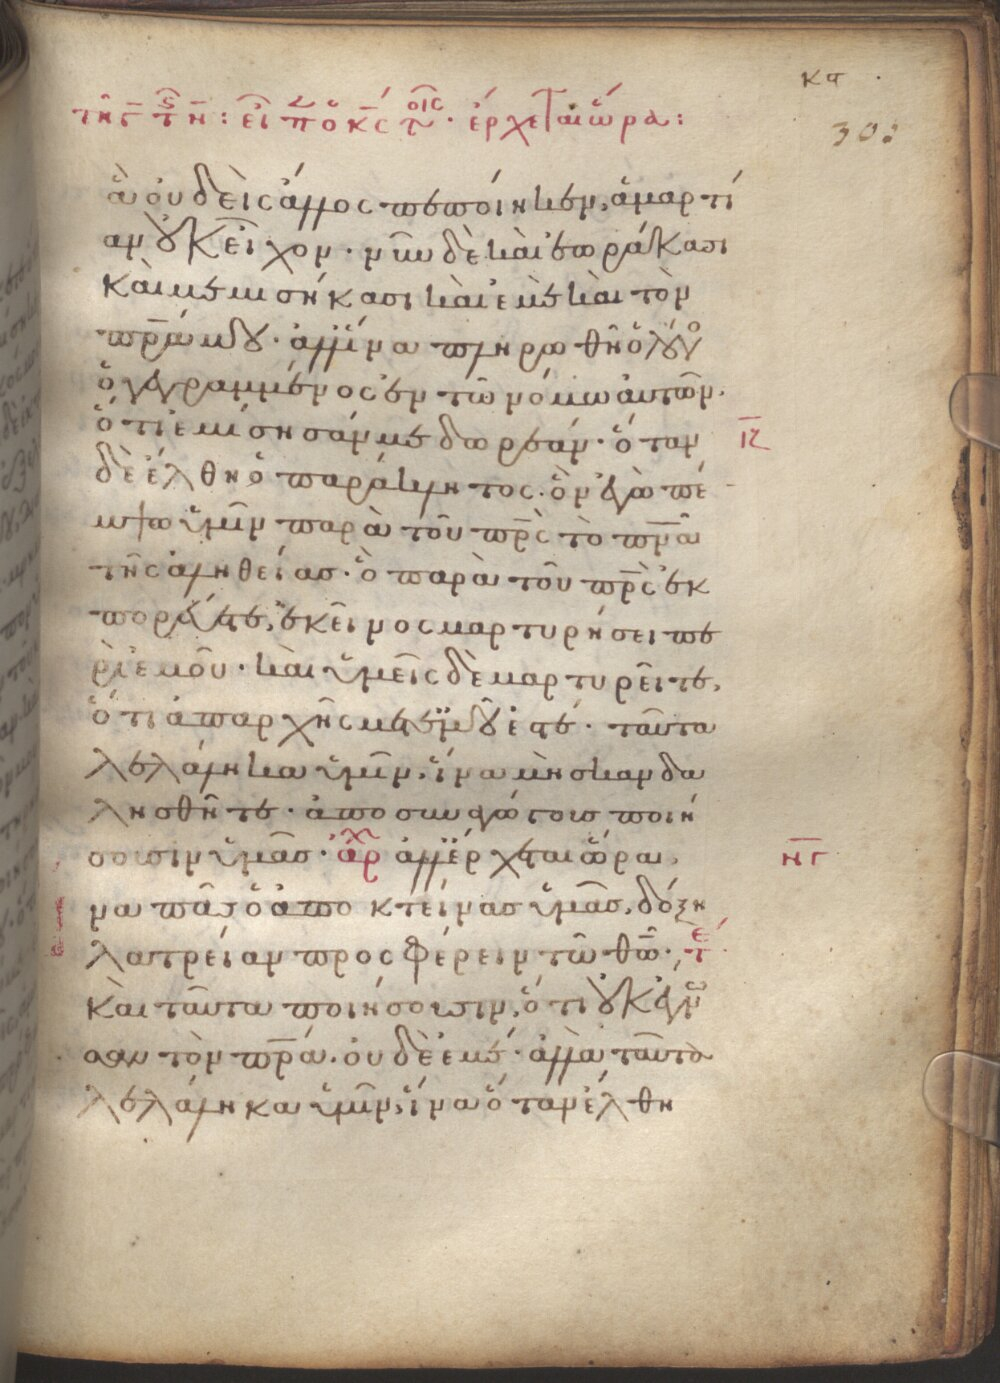 κα
303
τῆ γ τῆς ϛ τῆς ν : εἶπ ὁ κς τοις · ἔρχεται ὥρα :
ἃ οὐδεὶς ἄλλος πεποίηκεν, ἁμαρτί
αν οὐκ εἶχον · νῦν δὲ καὶ ἑωράκασι
καὶ μεμισήκασι καὶ ἐμὲ καὶ τὸν
πρ̅α μου · ἀλλ' ἵνα πληρωθῆ ὁ λόγο
ὁ γεγραμμένος ἐν τῶ νόμω αὐτῶν ·
ὅτι ἐμίσησάν με δωρεάν · ὅταν
δὲ ἔλθη ὁ παράκλητος · ὃν ἐγὼ πέ
μψω ὑμῖν παρὰ τοῦ πρ̅ς τὸ πν̅α
τῆς ἀληθείας · ὃ παρὰ τοῦ πρ̅ς ἐκ
πορεύεται, ἐκεῖνος μαρτυρήσει πε
ρὶ ἐμοῦ · καὶ ὑμεῖς δὲ μαρτυρεῖτε,
ὅτι ἀπαρχῆς μετ' ἐμοῦ ἐστέ · ταῦτα
λελάληκα ὑμῖν, ἵνα μὴ σκανδα
λησθῆτε · ἀποσυναγώγους ποιή
σουσιν ὑμᾶς · ἀρχ ἀλλ' ἔρχεται ὥρα,
ἵνα πᾶς ὁ ἀποκτείνας ὑμᾶς, δόξη
λατρείαν προσφέρειν τῶ θω̅ · τε
καὶ ταῦτα ποιήσουσιν, ὅτι οὐκ ἔγνω
σαν τὸν πρ̅α · οὐδὲ ἐμέ · ἀλλὰ ταῦτα
λελάληκα ὑμῖν, ἵνα ὅταν ἔλθη